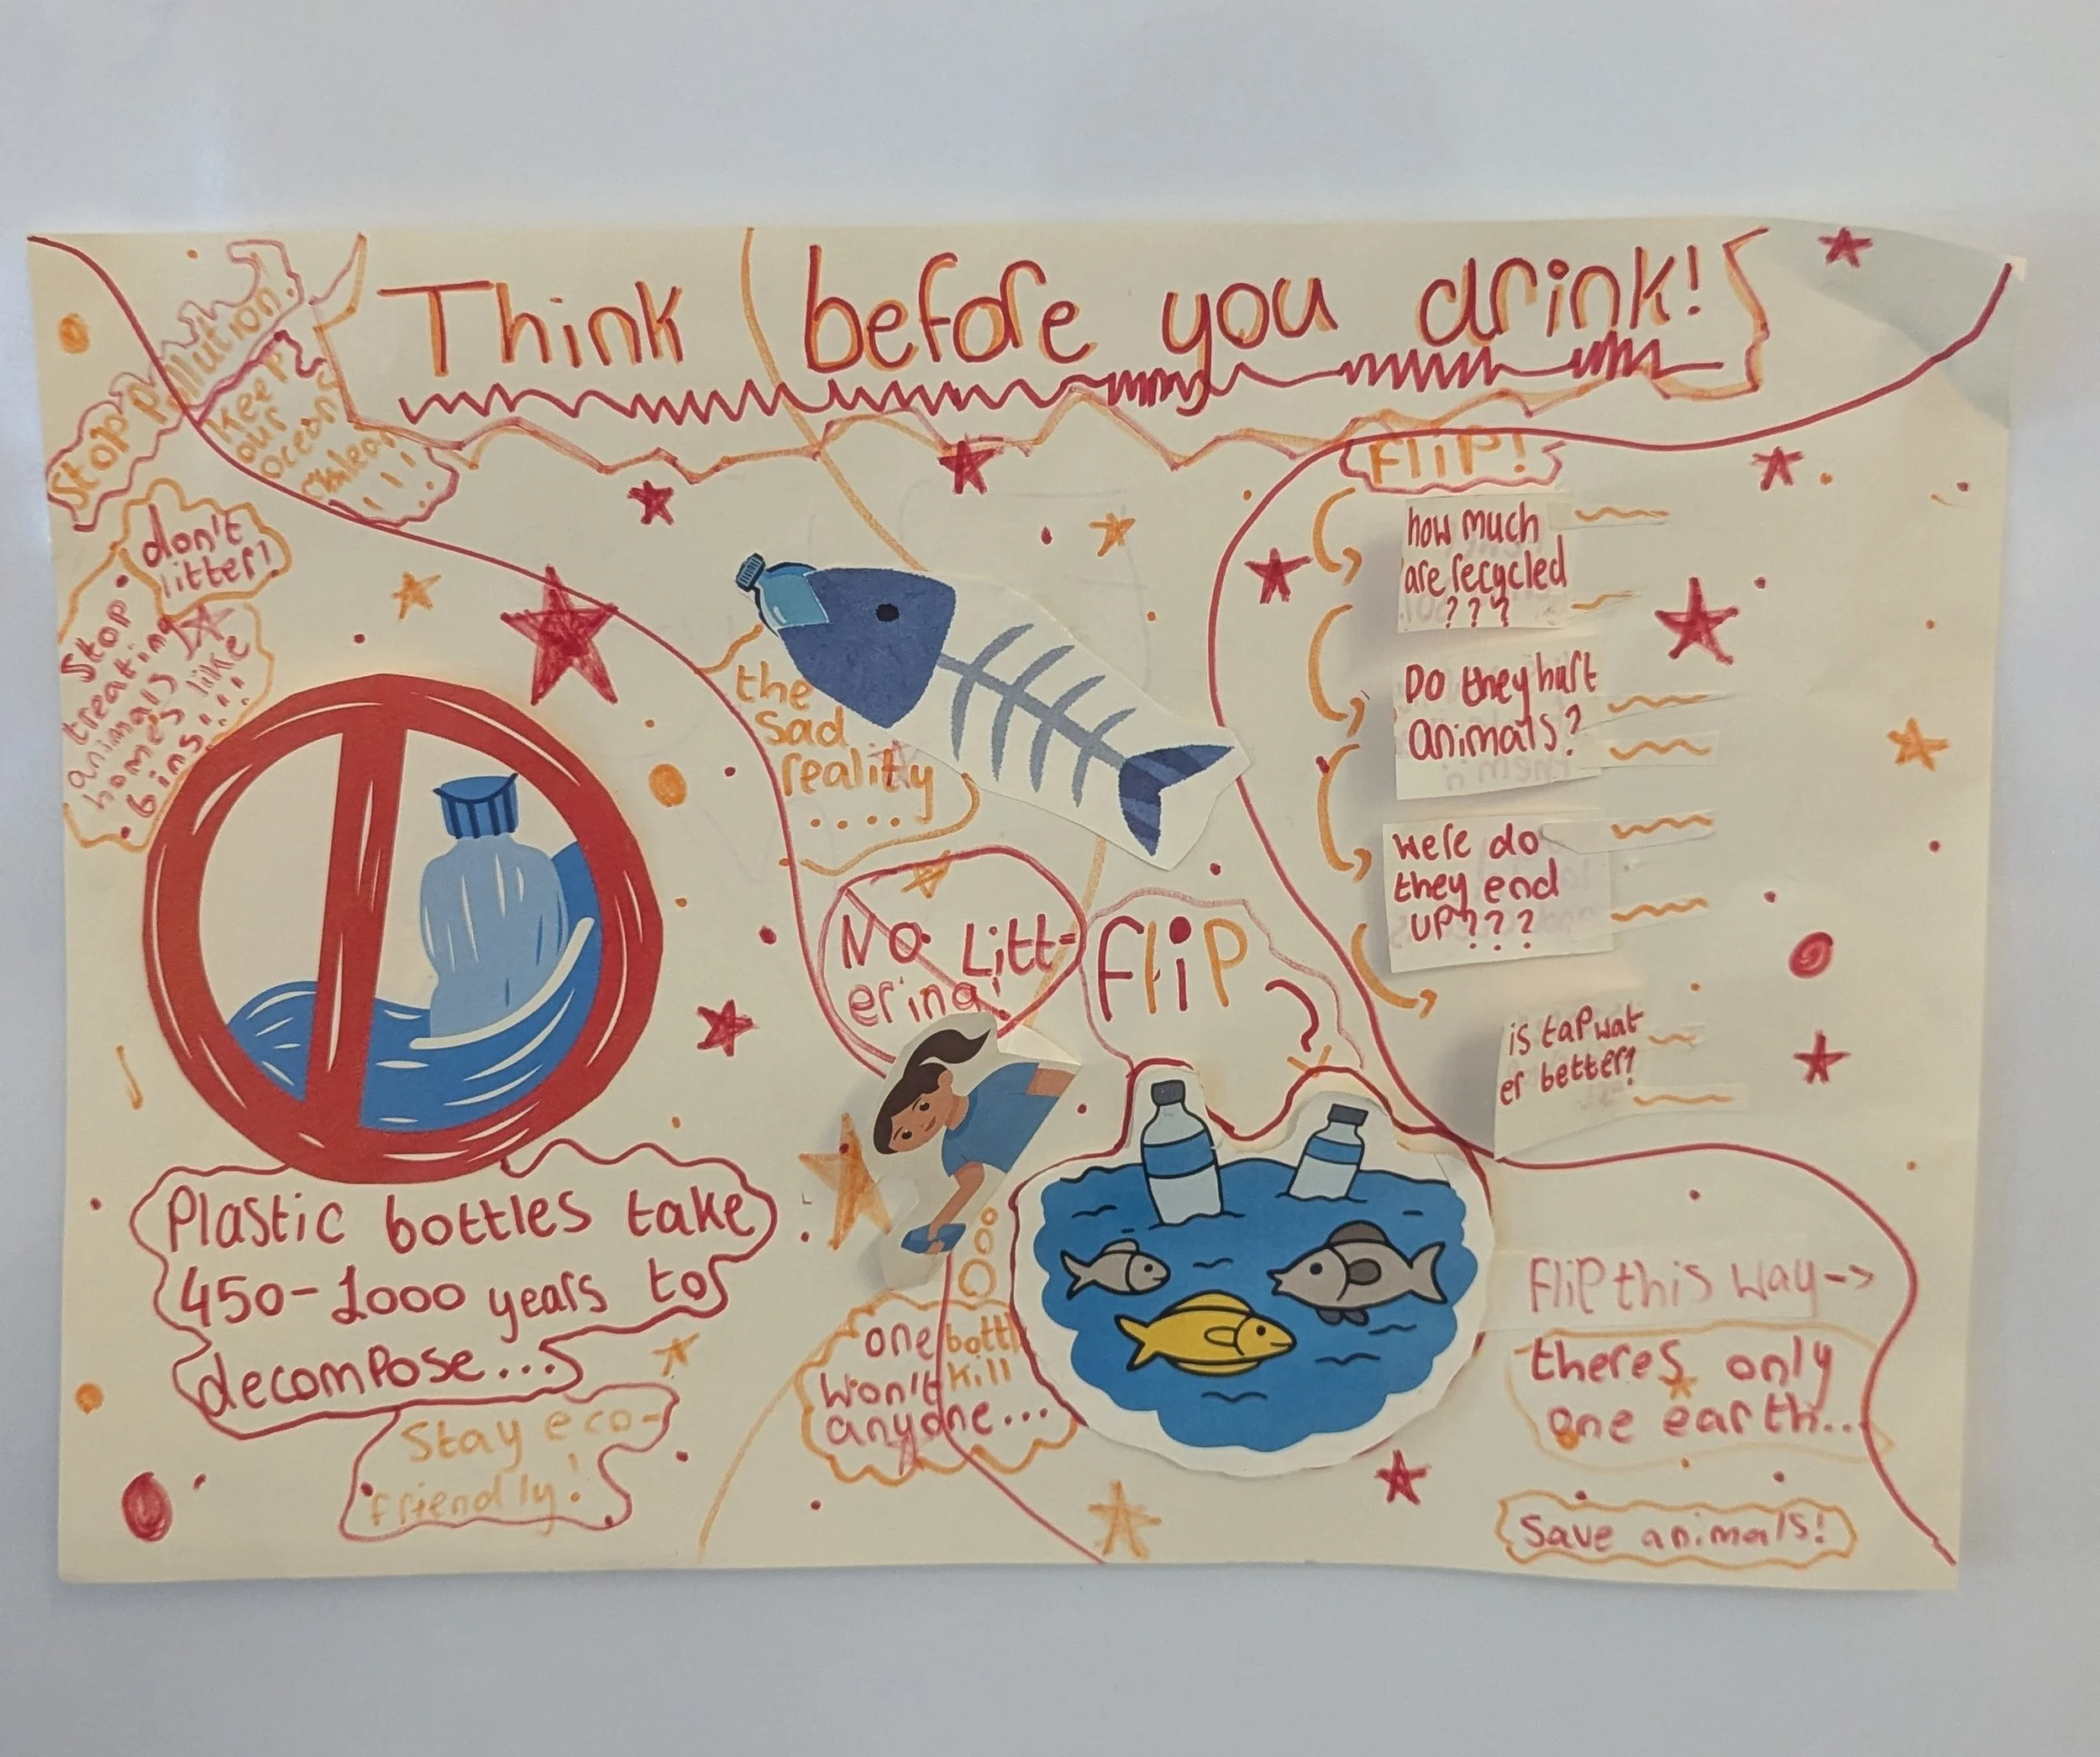 Think before you drink!
Stop pollution!
keep
our
oceans
clean
!!!
don't
litter!
Stop
treating
animals
homes like
bins!!!
the
sad
reality
....
FLiP!
how much
are recycled
???
Do they hurt
animals?
were do
they end
up???
is tap wat
er better?
No Litt-
ering!
FliP
Plastic bottles take
450-1000 years to
decompose...
Stay eco-
friendly!
one bottl
won't kill
anyone...
Flip this way->
theres only
one earth...
Save animals!